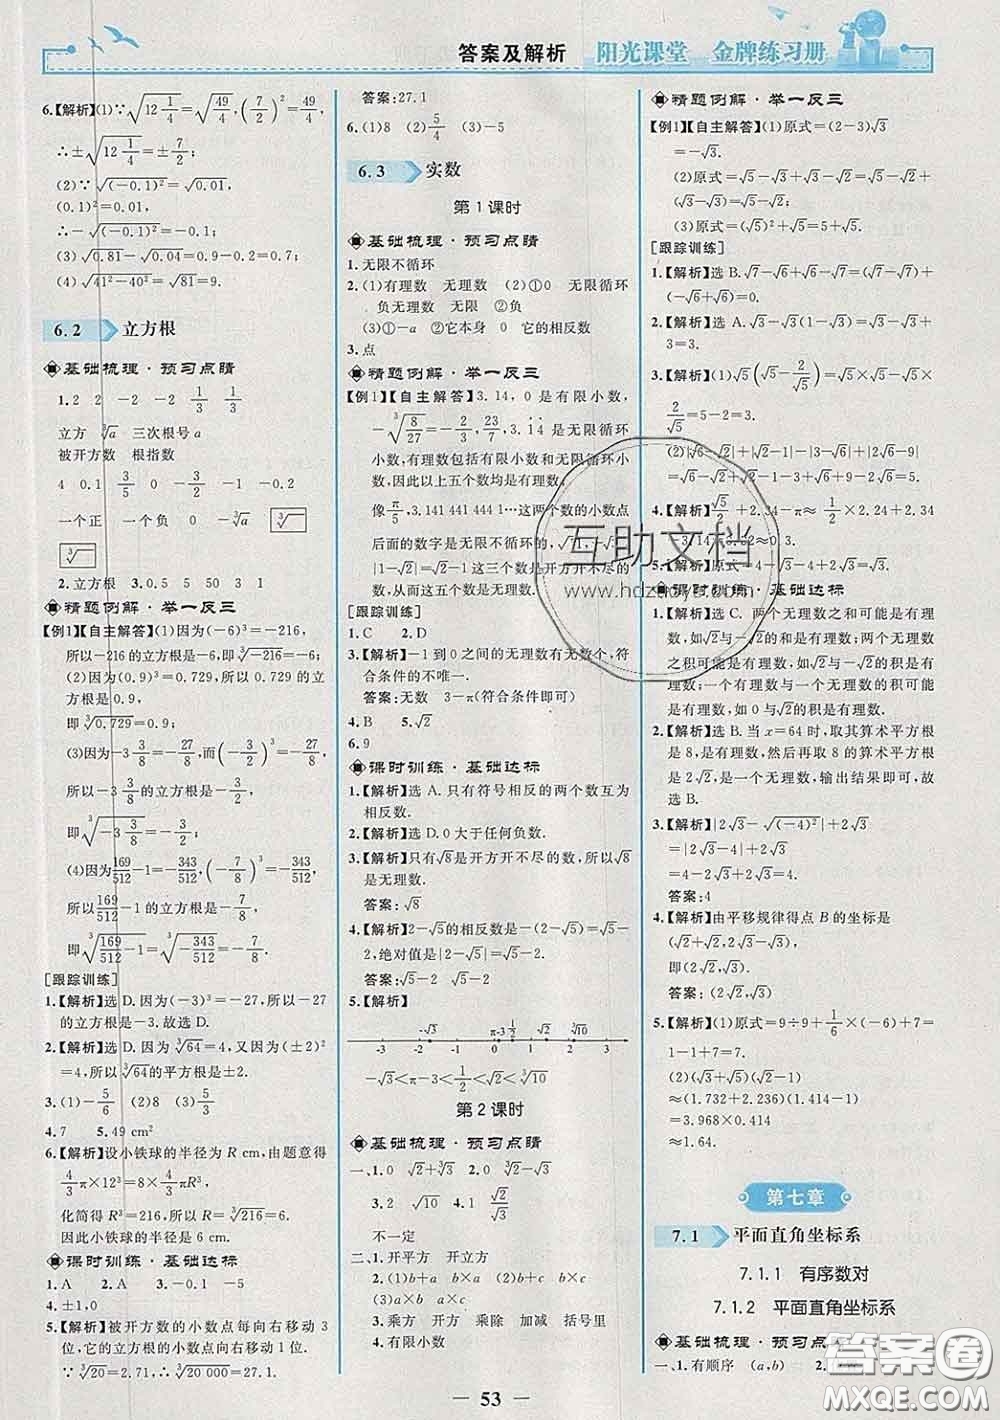 答案及解析 阳光课堂 金牌练习册
6.【解析】(1)∵√(12 1/4)=√(49/4),(7/2)²=49/4,
∴±√(12 1/4)=±7/2;
(2)∵√((-0.1)²)=√0.01,
(0.1)²=0.01,
∴-√((-0.1)²)=-0.1;
(3)√0.81-√0.04=0.9-0.2=0.7;
(4)√(41²-40²)=√81=9.
6.2 立方根
基础梳理·预习点睛
1.2 2 -2 -2 1/3 1/3
立方 ³√a 三次根号a
被开方数 根指数
4 0.1 3/5 0 -3 -1 -0.2
一个正 一个负 0 -³√a ³√
³√
2.立方根 3.0.5 5 50 3 1
精题例解·举一反三
【例1】【自主解答】(1)因为(-6)³=-216,
所以-216的立方根是-6,即³√-216=-6;
(2)因为(0.9)³=0.729,所以0.729的立方根是0.9,
即³√0.729=0.9;
(3)因为-3 3/8=-27/8,而(-3/2)³=-27/8,
所以-3 3/8的立方根是-3/2,
即³√(-3 3/8)=-3/2;
(4)因为169/512-1=-343/512,(-7/8)³=-343/512,
所以169/512-1的立方根是-7/8,
即³√(169/512-1)=³√(-343/512)=-7/8.
[跟踪训练]
1.【解析】选D.因为(-3)³=-27,所以-27
的立方根是-3.故选D.
2.【解析】选D.因为³√64=4,又因为(±2)²
=4,所以³√64的平方根是±2.
3.(1)-5/6 (2)8 (3)-9
4.7 5.49 cm²
6.【解析】设小铁球的半径为R cm,由题意得
4/3π×12³=8×4/3πR³,
化简得R³=216,所以R=³√216=6.
因此小铁球的半径是6 cm.
课时训练·基础达标
1.A 2.A 3.-0.1 -5
4.±1,0
5.【解析】被开方数的小数点每向右移动3
位,它的立方根的小数点向右移动1位.
∵³√20=2.71,∴³√20 000=27.1.
答案:27.1
6.(1)8 (2)5/4 (3)-5
6.3 实数
第1课时
基础梳理·预习点睛
1.无限不循环
2.(1)有理数 无理数 (2)①0 无限循环
负无理数 无限 ②负
(3)①-a ②它本身 0 它的相反数
3.点
精题例解·举一反三
【例1】【自主解答】3.14,0是有限小数,
-³√(8/27)=-2/3,23/7,3.1̇4̇是无限循环
小数,有理数包括有限小数和无限循环小
数,因此以上五个数均是有理数.
像π/5,3.141 441 444 1…这两个数的小数点
后面的数字是无限不循环的,
|1-√2|=√2-1这三个数是开方开不尽的
数,从而这五个数是无理数.
[跟踪训练]
1.C 2.D
3.【解析】-1到0之间的无理数有无数个,符
合条件的不唯一.
答案:无数 3-π(符合条件即可)
4.B 5.√2
6.9
课时训练·基础达标
1.【解析】选A.只有符号相反的两个数互为
相反数.
2.【解析】选D.0大于任何负数.
3.【解析】只有√8是开方开不尽的数,所以√8
是无理数.
答案:√8
4.【解析】2-√5的相反数是-(2-√5)=√5-
2,绝对值是|2-√5|=√5-2.
答案:√5-2 √5-2
5.【解析】
-√3 π-3 1/2 √2 ³√10
-3 -2 -1 0 1 2 3
-√3<π-3<1/2<√2<³√10
第2课时
基础梳理·预习点睛
一、1.0 √2+³√3 2.√2-√3
3.2 √10 4.1 √2/√3
不一定
二、1.开平方 开立方
2.(1)b+a b×a (2)b+c b+c
(3)a×c b×c
3.乘方 开方 乘除 加减 括号里
4.有限小数
精题例解·举一反三
【例1】【自主解答】(1)原式=(2-3)√3
=-√3.
(2)原式=√5-√3+√3+√5=(√5+√5)+
(√3-√3)=2√5.
(3)原式=(√5)²+√5×1/√5=5+1=6.
[跟踪训练]
2.【解析】选A.√3-√3-(-3)=√3-√3
+3=3.
3.【解析】(1)√5(√5-2/√5)=√5×√5-√5×
2/√5=5-2=3.
4.【解析】√5/2+2.34-π≈1/2×2.24+2.34
-3.14≈0.3.
课时训练·基础达标
1.【解析】选C.两个无理数之和可能是有理
数,如√2与-√2的和是有理数;两个无理数
之积可能是有理数,如√2与-√2的积是有理
数;一个有理数与一个无理数的积可能
是有理数,如0与√2的积是有理数.
2.【解析】选B.当x=64时,取其算术平方根
是8,是有理数,然后再取8的算术平方根
是2√2,是无理数,输出结果即可,故
选B.
3.【解析】|2√3-√((-4)²)|+2√3
=|2√3-4|+2√3=4-2√3+2√3=4.
答案:4
4.【解析】由平移规律得点B的坐标是
(√2+√2,√3-√2+√2),
即(2√2,√3).
答案:(2√2,√3)
5.【解析】(1)原式=9÷9+1/6×(-6)+7=
1-1+7=7.
(2)(√3+√5)(√2-1)
≈(1.732+2.236)(1.414-1)
=3.968×0.414
≈1.64.
第七章
7.1 平面直角坐标系
7.1.1 有序数对
7.1.2 平面直角坐标系
基础梳理·预习点
一、1.有顺序 (a,b) 2.
— 53 —
互助文档
答案圈
MXQE.COM